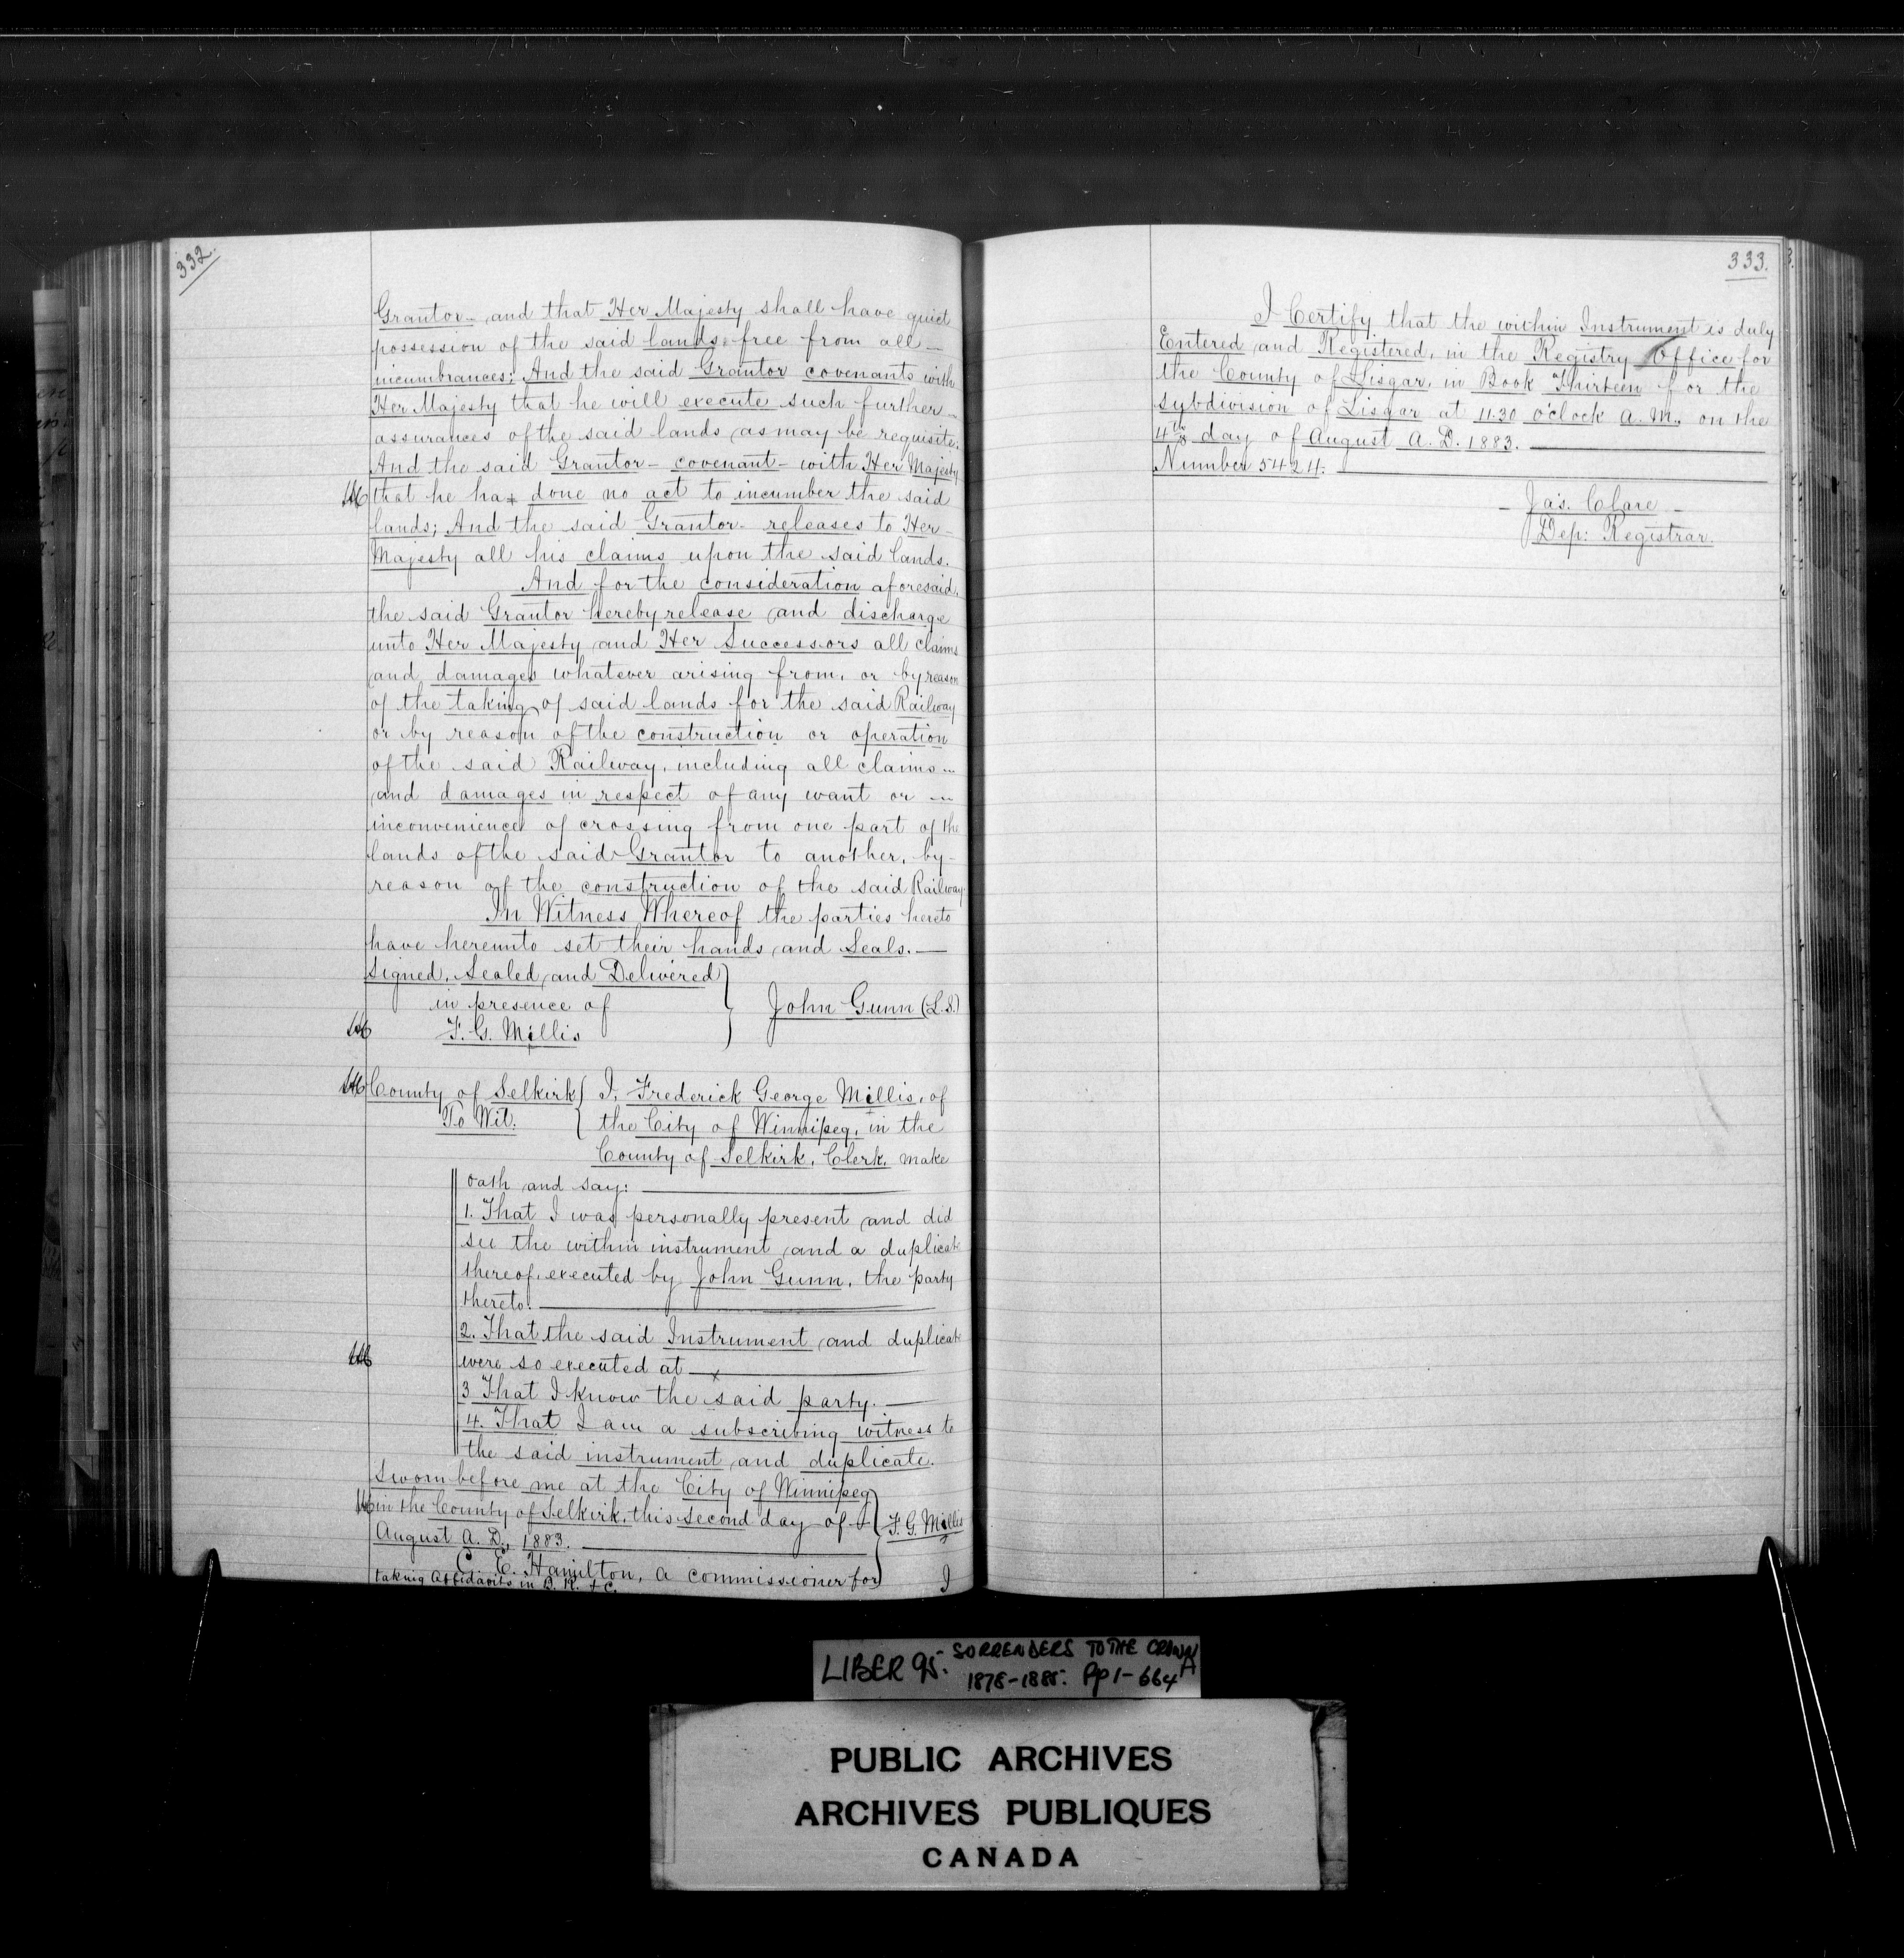 332.
Grantor - and that Her Majesty shall have quiet
possession of the said lands free from all -
incumbrances; And the said Grantor covenants with
Her Majesty that he will execute such further -
assurances of the said lands as may be requisite.
And the said Grantor - covenant - with Her Majesty
that he ha done no act to incumber the said
lands; And the said Grantor - releases to Her -
Majesty all his claims upon the said lands.
And for the consideration aforesaid,
the said Grantor hereby release and discharge
unto Her Majesty and Her Successors all claims
and damages whatever arising from, or by reason
of the taking of said lands for the said Railway
or by reason of the construction or operation
of the said Railway, including all claims -
and damages in respect of any want or -
inconvenience of crossing from one part of the
lands of the said Grantor to another, by -
reason of the construction of the said Railway.
In Witness Whereof the parties hereto
have hereunto set their hands and Seals. —
Signed, Sealed and Delivered
in presence of
John Gunn (L.S.)
F. G. Millis
County of Selkirk I, Frederick George Millis, of
To Wit: the City of Winnipeg, in the
County of Selkirk, Clerk, make
oath and say: —
1. That I was personally present and did
see the within instrument and a duplicate
thereof, executed by John Gunn, the party
thereto. —
2. That the said Instrument and duplicate
were so executed at — x
3 That I know the said party. —
4. That I am a subscribing witness to
the said instrument and duplicate.
Sworn before me at the City of Winnipeg
in the County of Selkirk, this second day of F. G. Millis
August A. D. 1883. —
C. E. Hamilton, a commissioner for
taking Affidavits in B. R. &c. I
333.
I Certify that the within Instrument is duly
Entered and Registered, in the Registry Office for
the County of Lisgar, in Book Thirteen for the
subdivision of Lisgar at 11.30 o'clock A. M., on the
4th day of August A. D. 1883. —
Number 5424. —
- Jas. Clare -
Dep: Registrar.
LIBER 95. SURRENDERS TO THE CROWN
1878-1885. Pp 1-664 A
PUBLIC ARCHIVES
ARCHIVES PUBLIQUES
CANADA